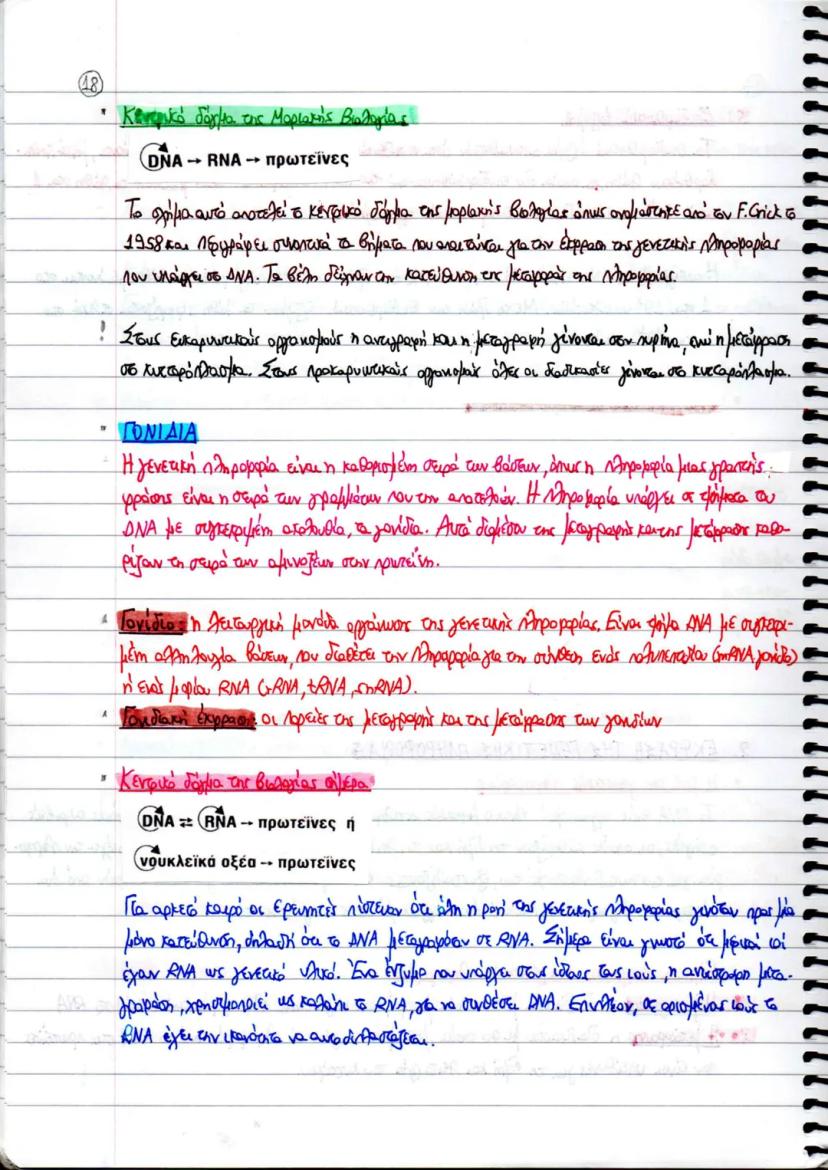 18
Κεντρικό δόγμα της Μοριακής Βιολογίας
DNA → RNA → πρωτεΐνες
Το σχήμα αυτό αποτελεί το κεντρικό δόγμα της μοριακής βιολογίας όπως ονομάστηκε από τον F.Crick το
1958 και περιγράφει συνοπτικά τα βήματα που απαιτούνται για την έκφραση της γενετικής πληροφορίας
που υπάρχει στο DNA. Τα βέλη δείχνουν την κατεύθυνση της μεταφοράς της πληροφορίας.
! Στους ευκαρυωτικούς οργανισμούς η αντιγραφή και η μεταγραφή γίνονται στον πυρήνα, ενώ η μετάφραση
στο κυτταρόπλασμα. Στους προκαρυωτικούς οργανισμούς όλες οι διαδικασίες γίνονται στο κυτταρόπλασμα.
ΓΟΝΙΔΙΑ
Η γενετική πληροφορία είναι η καθορισμένη σειρά των βάσεων, όπως η πληροφορία μιας γραπτής
φράσης είναι η σειρά των γραμμάτων που την αποτελούν. Η πληροφορία υπάρχει σε τμήματα του
DNA με συγκεκριμένη ακολουθία, τα γονίδια. Αυτά διαμέσου της μεταγραφής και της μετάφρασης καθο-
ρίζουν τη σειρά των αμινοξέων στην πρωτεΐνη.
Γονίδιο: η λειτουργική μονάδα οργάνωσης της γενετικής πληροφορίας. Είναι τμήμα DNA με συγκεκρι-
μένη αλληλουχία βάσεων, που διαθέτει την πληροφορία για την σύνθεση ενός πολυπεπτιδίου (mRNA γονίδιο)
ή ενός μορίου RNA (rRNA, tRNA, snRNA).
Γονιδιακή έκφραση: οι πορείες της μεταγραφής και της μετάφρασης των γονιδίων
Κεντρικό δόγμα της βιολογίας σήμερα
DNA ⇌ RNA → πρωτεΐνες ή
νουκλεϊκά οξέα → πρωτεΐνες
Για αρκετό καιρό οι ερευνητές πίστευαν ότι όλη η ροή της γενετικής πληροφορίας γινόταν προς μία
μόνο κατεύθυνση, δηλαδή ότι το DNA μεταγραφόταν σε RNA. Σήμερα είναι γνωστό ότι μερικοί ιοί
έχουν RNA ως γενετικό υλικό. Ένα ένζυμο που υπάρχει στους ίδιους τους ιούς, η αντίστροφη μετα-
γραφάση, χρησιμοποιεί ως καλούπι το RNA, για να συνθέσει DNA. Επιπλέον, σε ορισμένους ιούς το
RNA έχει την ικανότητα να αυτοδιπλασιάζεται.